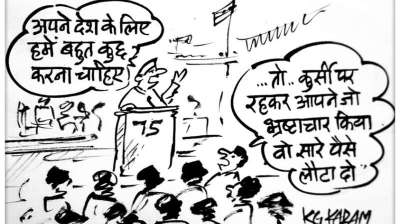 अपने देश के लिए
हमें बहुत कुछ
करना चाहिए
75
...तो.. कुर्सी पर
रहकर आपने जो
भ्रष्टाचार किया
वो सारे पैसे
लौटा दो..
KG KADAM